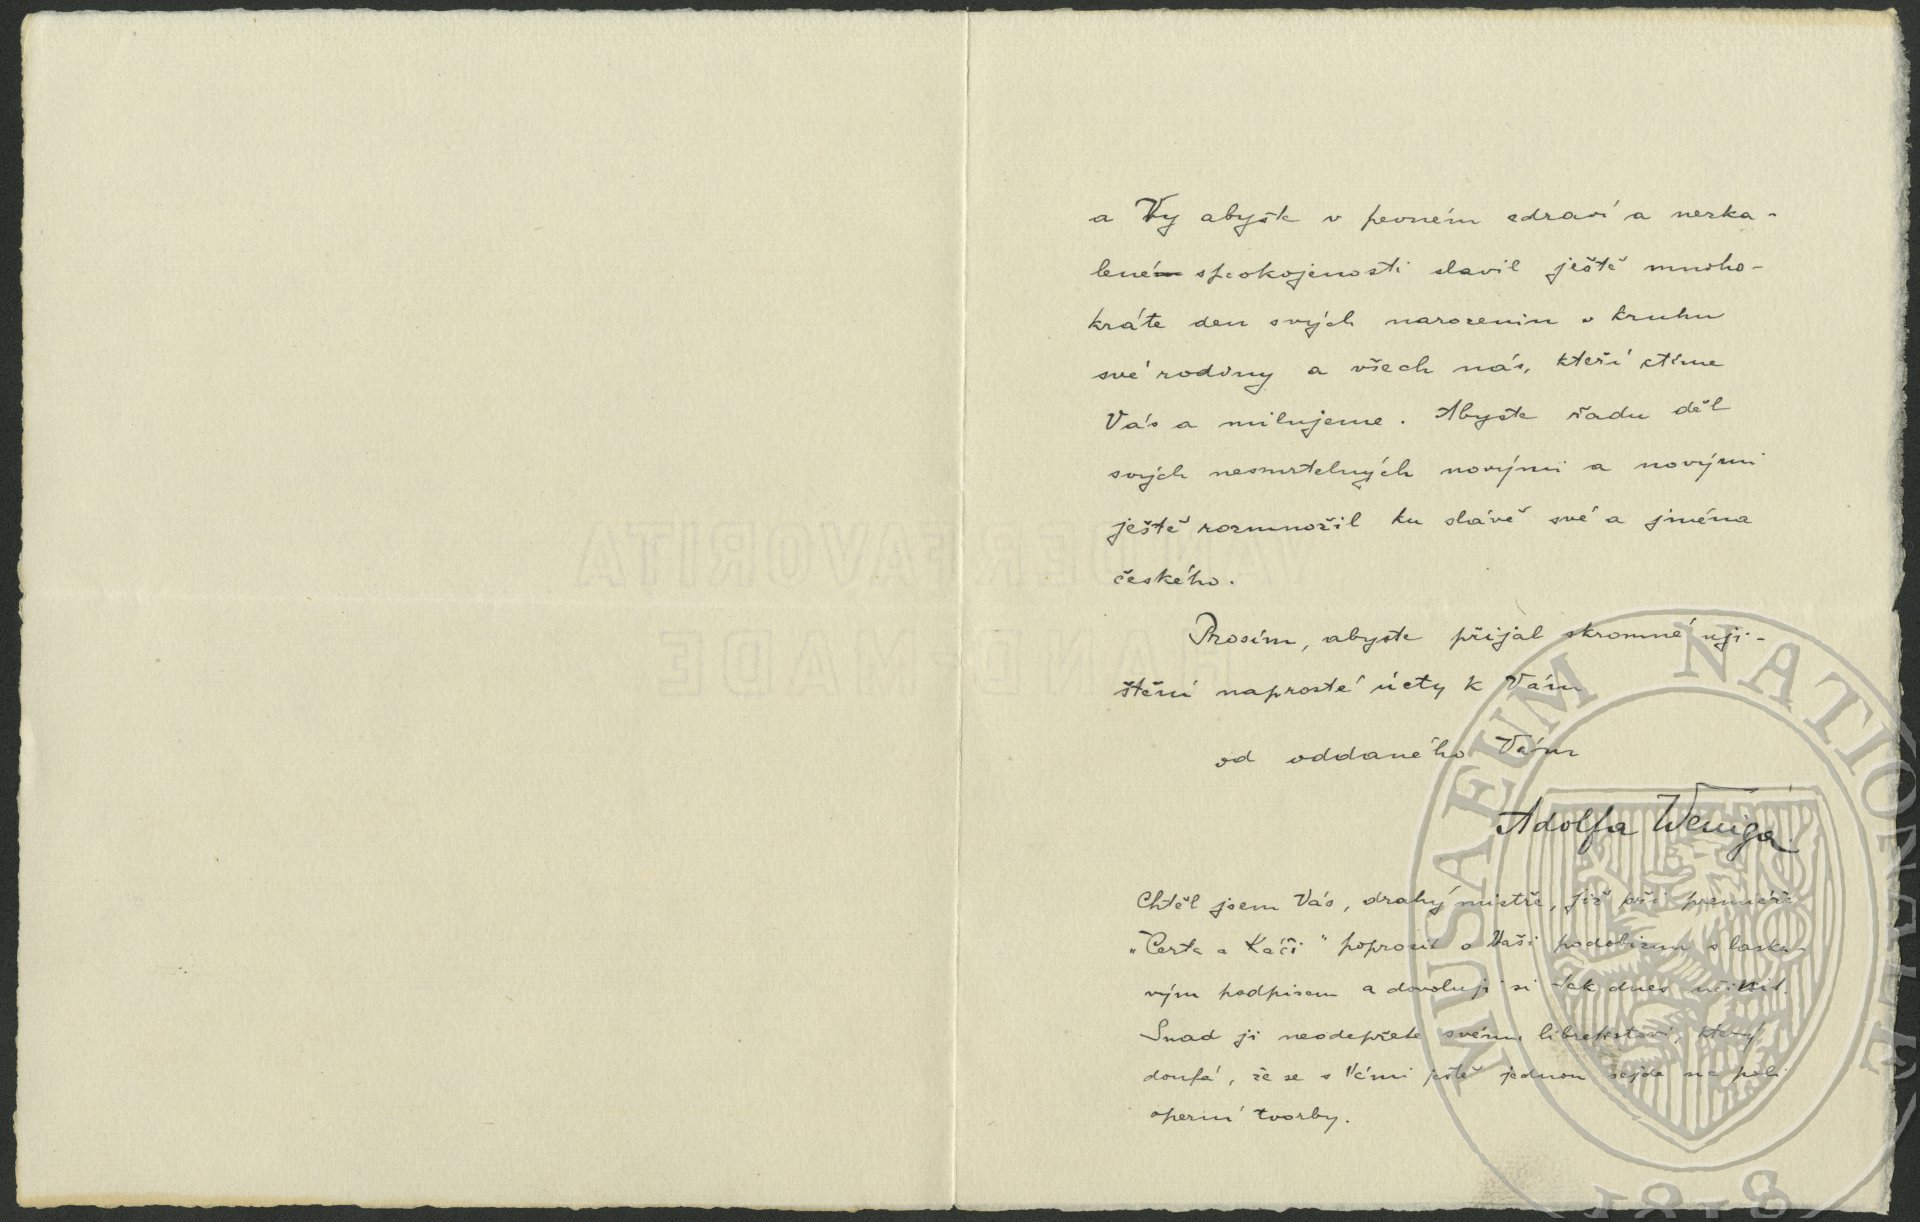 a Vy abyste v pevném zdraví a nezka-
lené spokojenosti slavil ještě mnoho-
kráte den svých narozenin v kruhu
své rodiny a všech nás, kteří ctíme
Vás a milujeme. Abyste řadu děl
svých nesmrtelných novými a novými
ještě rozmnožil ku slávě své a jména
českého.
Prosím, abyste přijal skromné uji-
štění naprosté úcty k Vám
od oddaného Vám
Adolfa Weniga.
Chtěl jsem Vás, drahý mistře, již při premiéře
„Čerta a Káči" poprosit o Vaši podobiznu s laska-
vým podpisem a dovoluji si tak dnes učinit.
Snad ji neodepřete svému libretistovi, který
doufá, že se s Vámi ještě jednou sejde na poli
operní tvorby.
VAN DER FAVORITA
HAND-MADE
MUSAEUM NATIONALE
1818